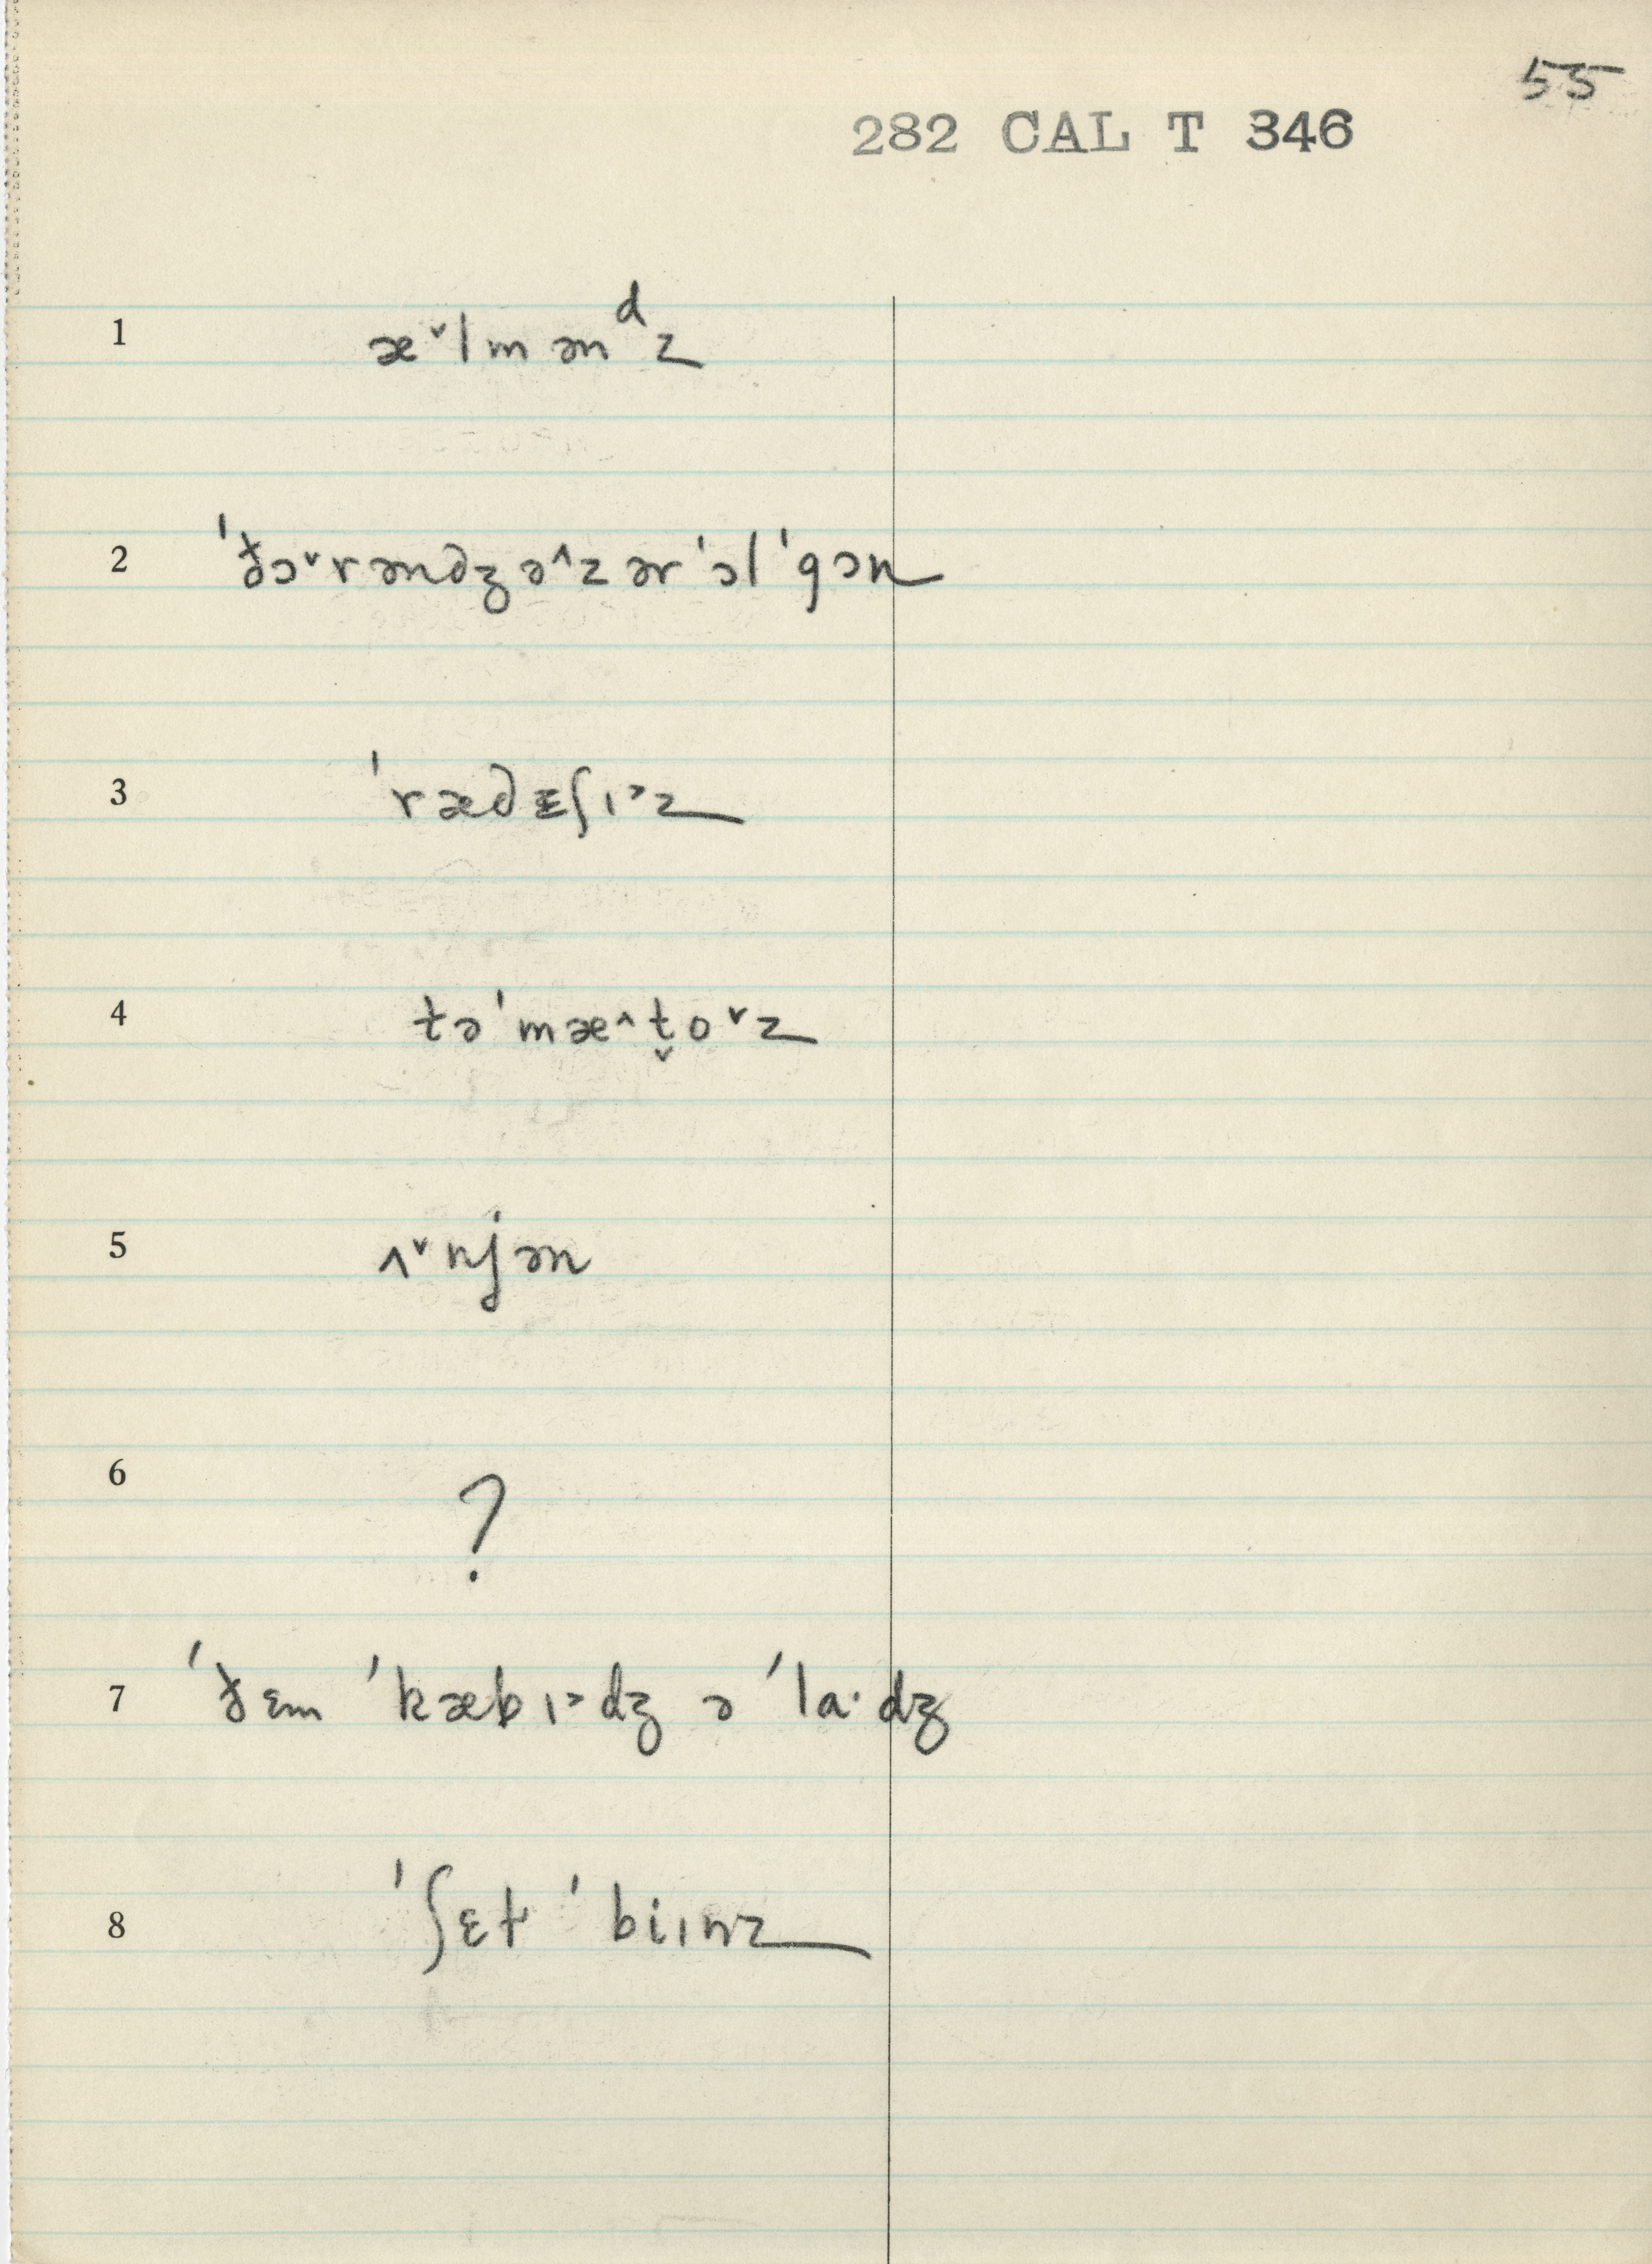 55
282 CAL T 346
1 æ˅lmənᵈz
2 ˈðɔ˅rəndʒə˄z ər ˈɔl ˈgɔn
3 ˈrædᵻʃɪ˃z
4 təˈmæ˄t̬o˅z
5 ʌ˅njən
6 ?
7 ˈðɛm ˈkæbɪ˃dʒ ə ˈla·dʒ
8 ˈʃɛt ˈbiɪnz